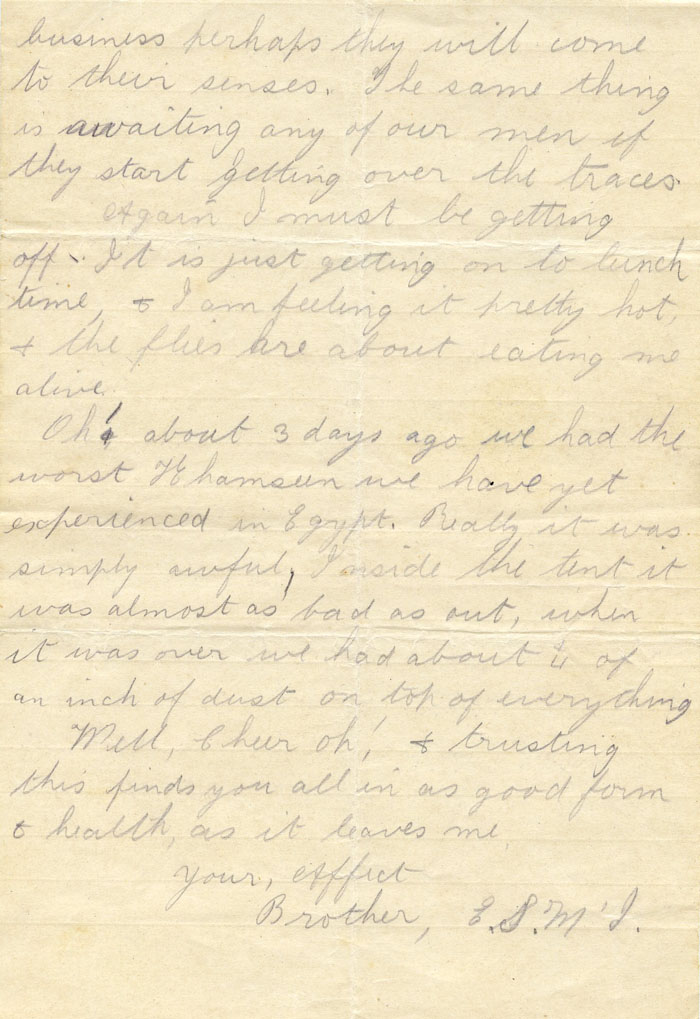 business perhaps they will come
to their senses. The same thing
is awaiting any of our men if
they start getting over the traces.
Again I must be getting
off. It is just getting on to lunch
time, & I am feeling it pretty hot,
& the flies are about eating me
alive.
Oh! about 3 days ago we had the
worst Khamseen we have yet
experienced in Egypt. Really it was
simply awful, Inside the tent it
was almost as bad as out, when
it was over we had about ¼ of
an inch of dust on top of everything
Well, Cheer oh! & trusting
this finds you all in as good form
& health, as it leaves me,
your, affect
Brother, E.S.M'I.